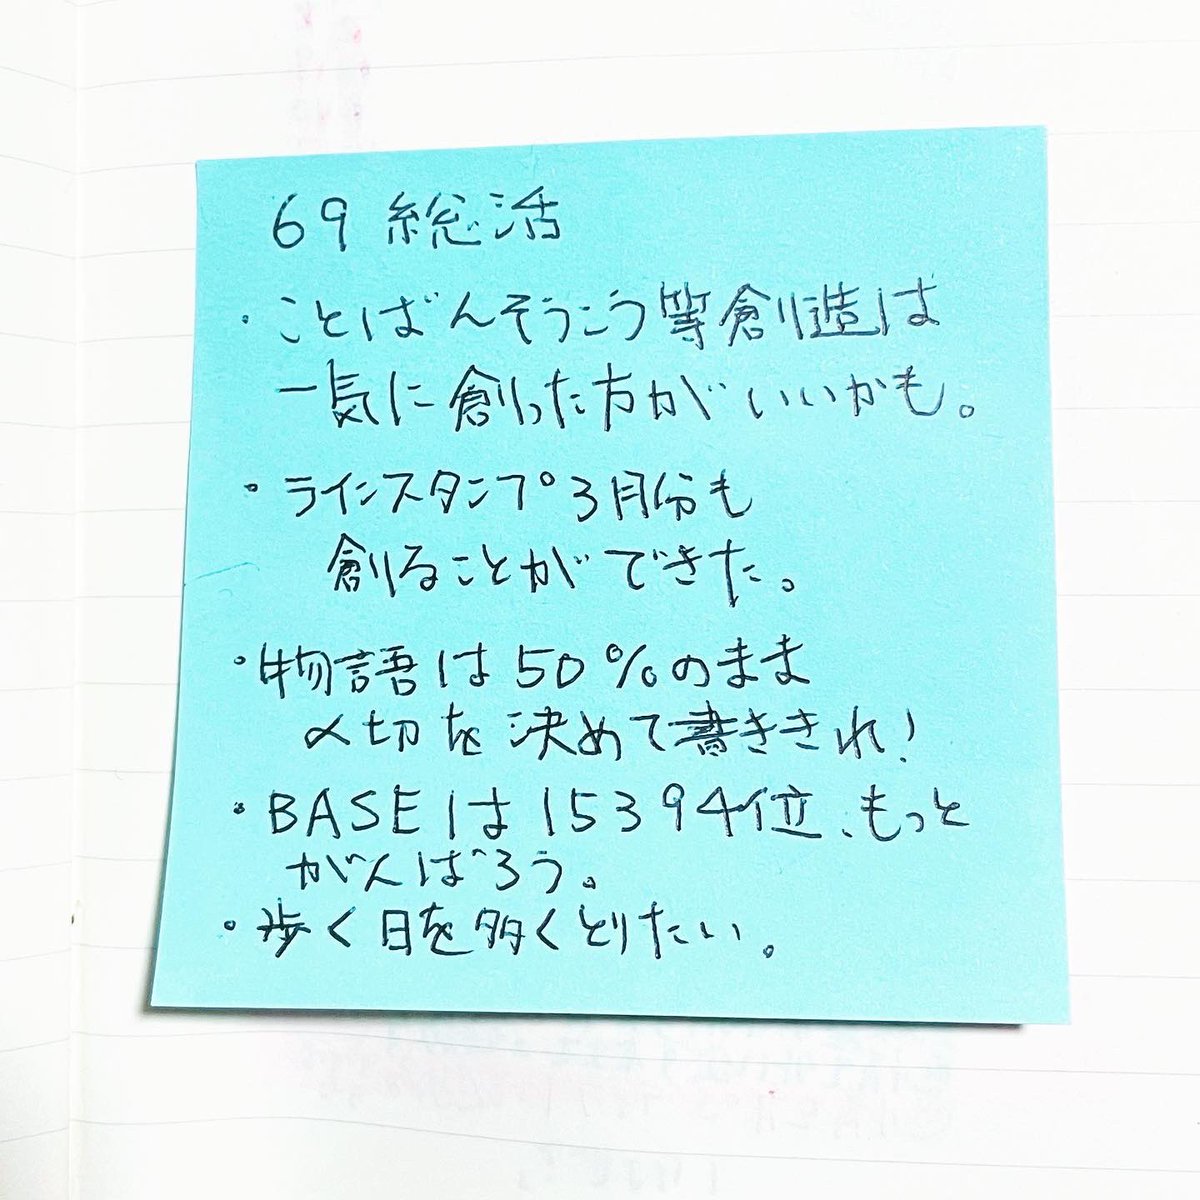 69 総活
・ことばんそうこう等創造は
一気に創った方がいいかも。
・ラインスタンプ3月分も
創ることができた。
・物語は50%のまま
〆切を決めて書ききれ!
・BASEは15394位、もっと
がんばろう。
・歩く日を多くとりたい。